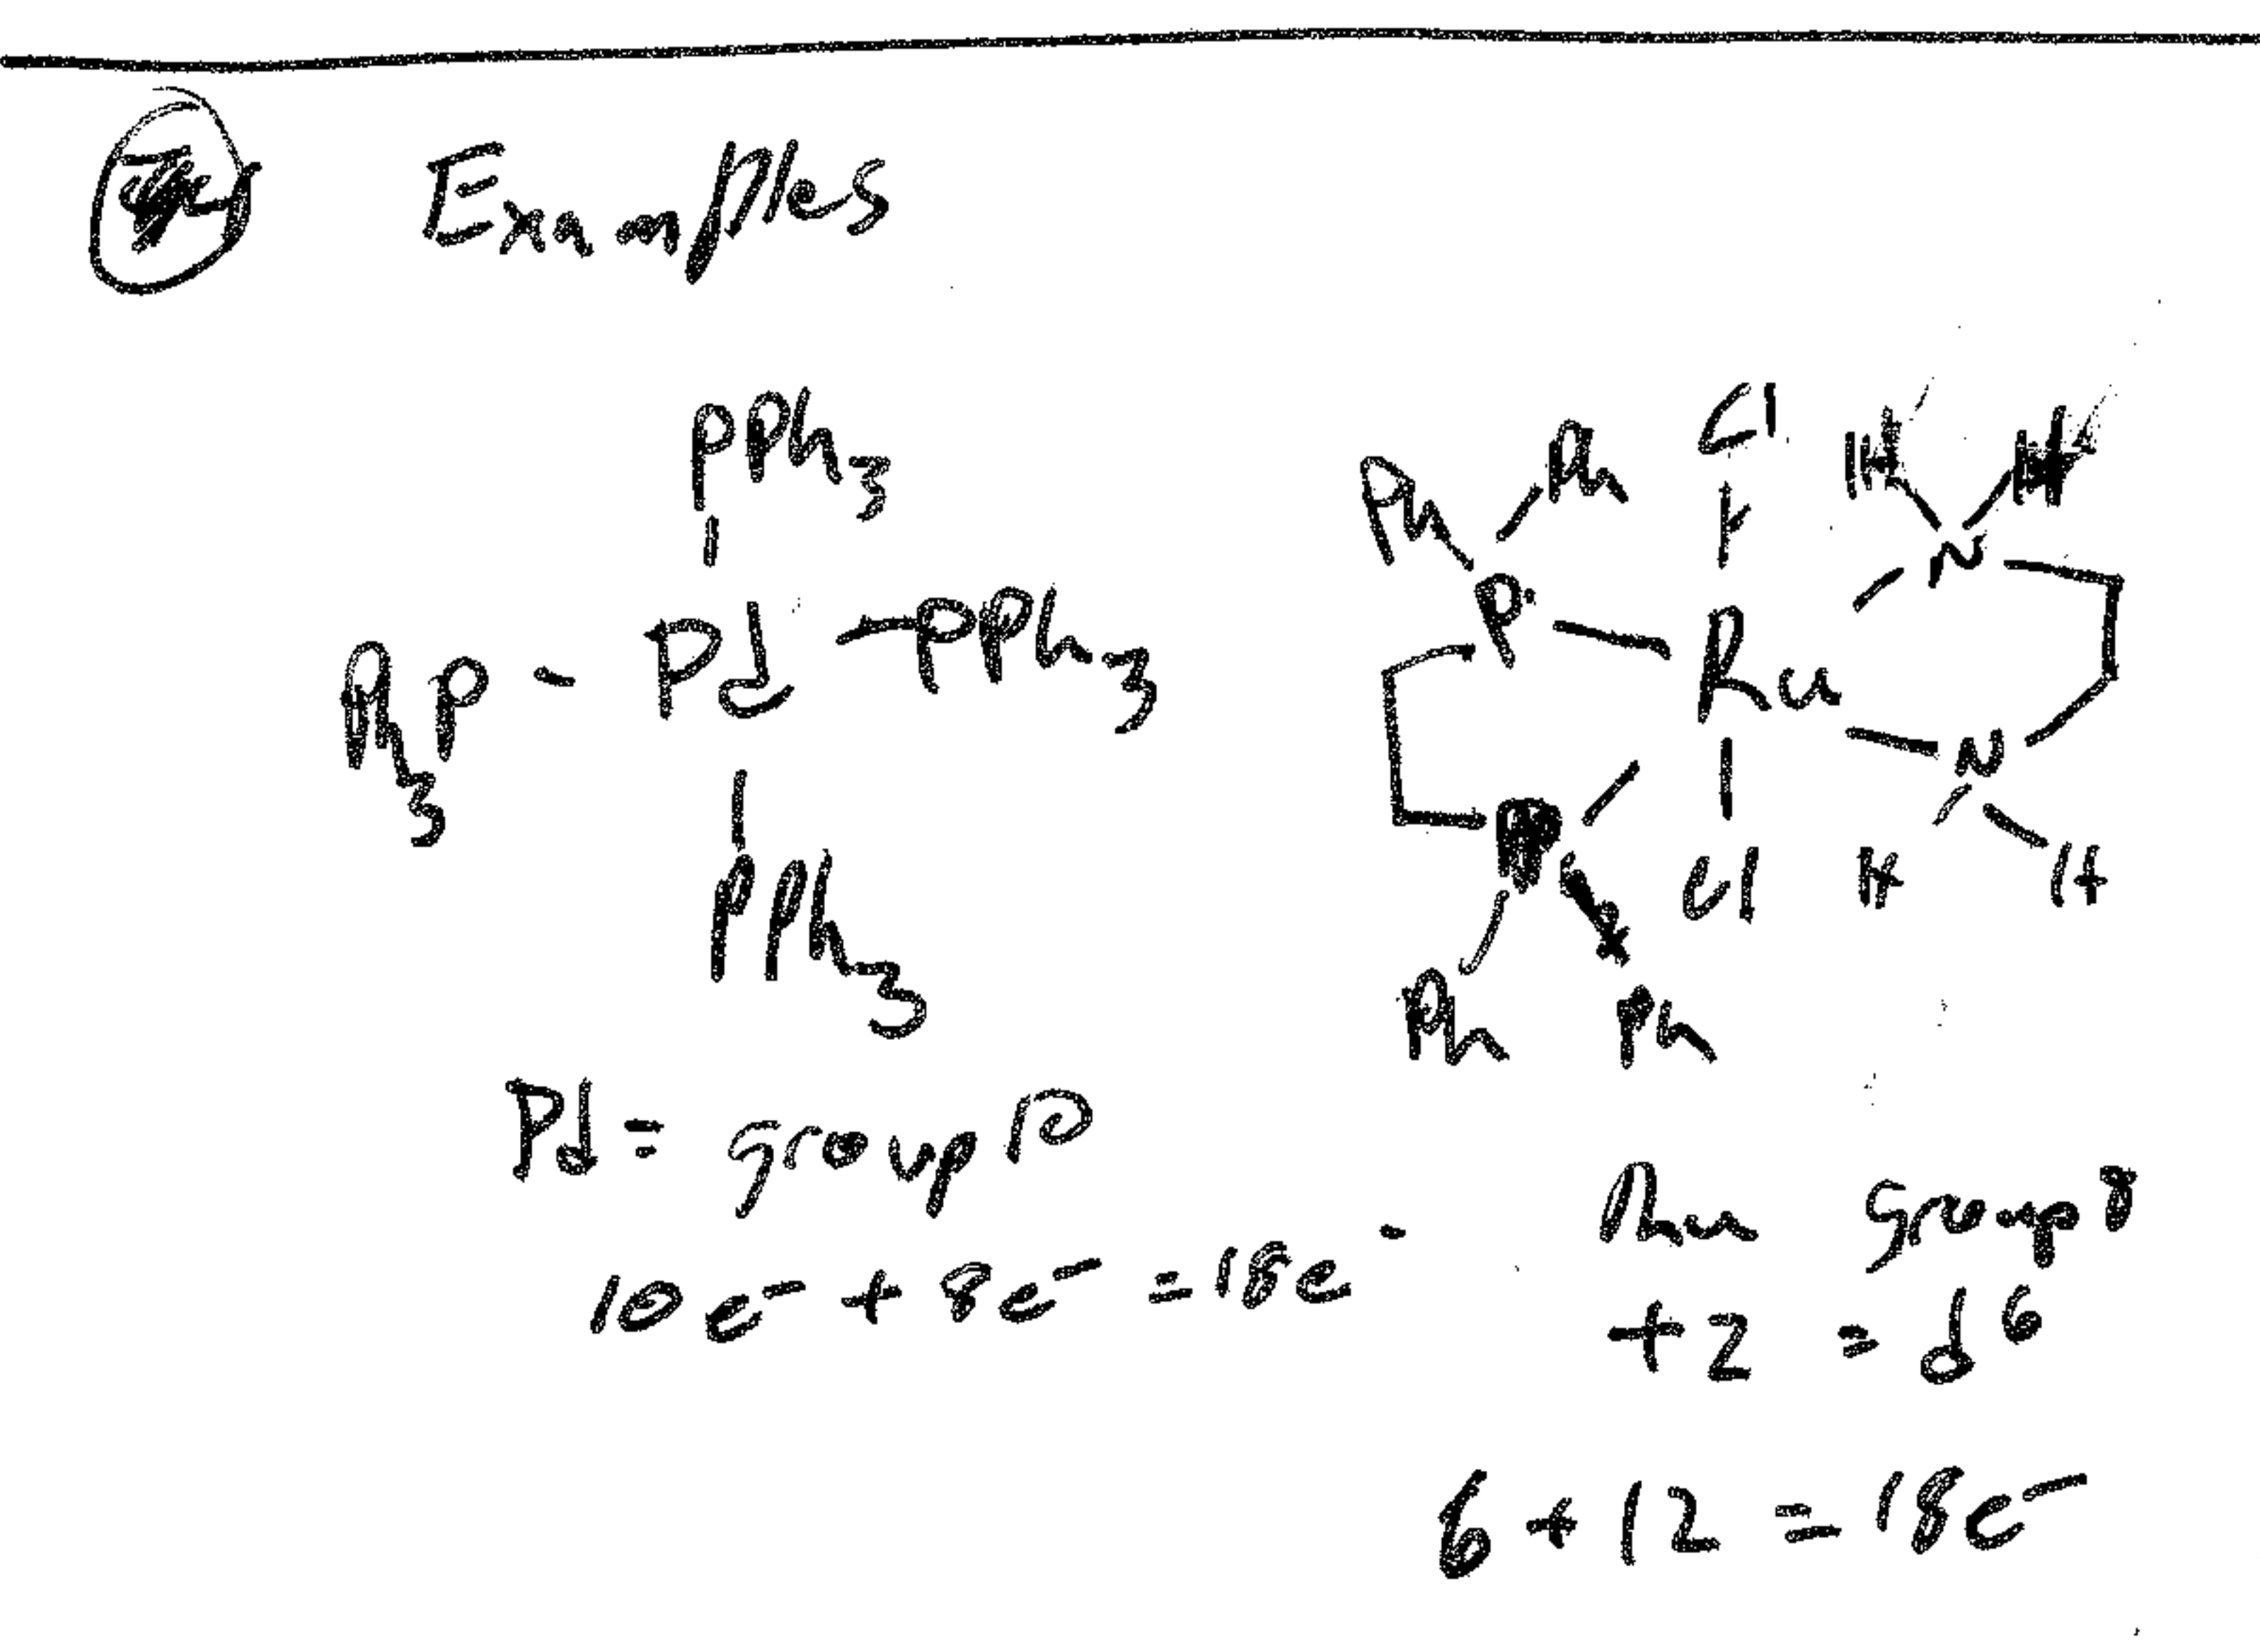 Examples
PPh3
Ph3P - Pd - PPh3
PPh3
Pd = group 10
10e- + 8e- = 18e-
Cl
Ph Ph H H
P N
Ru
P N
Cl H H
Ph Ph
Ru group 8
+2 = d6
6 + 12 = 18e-